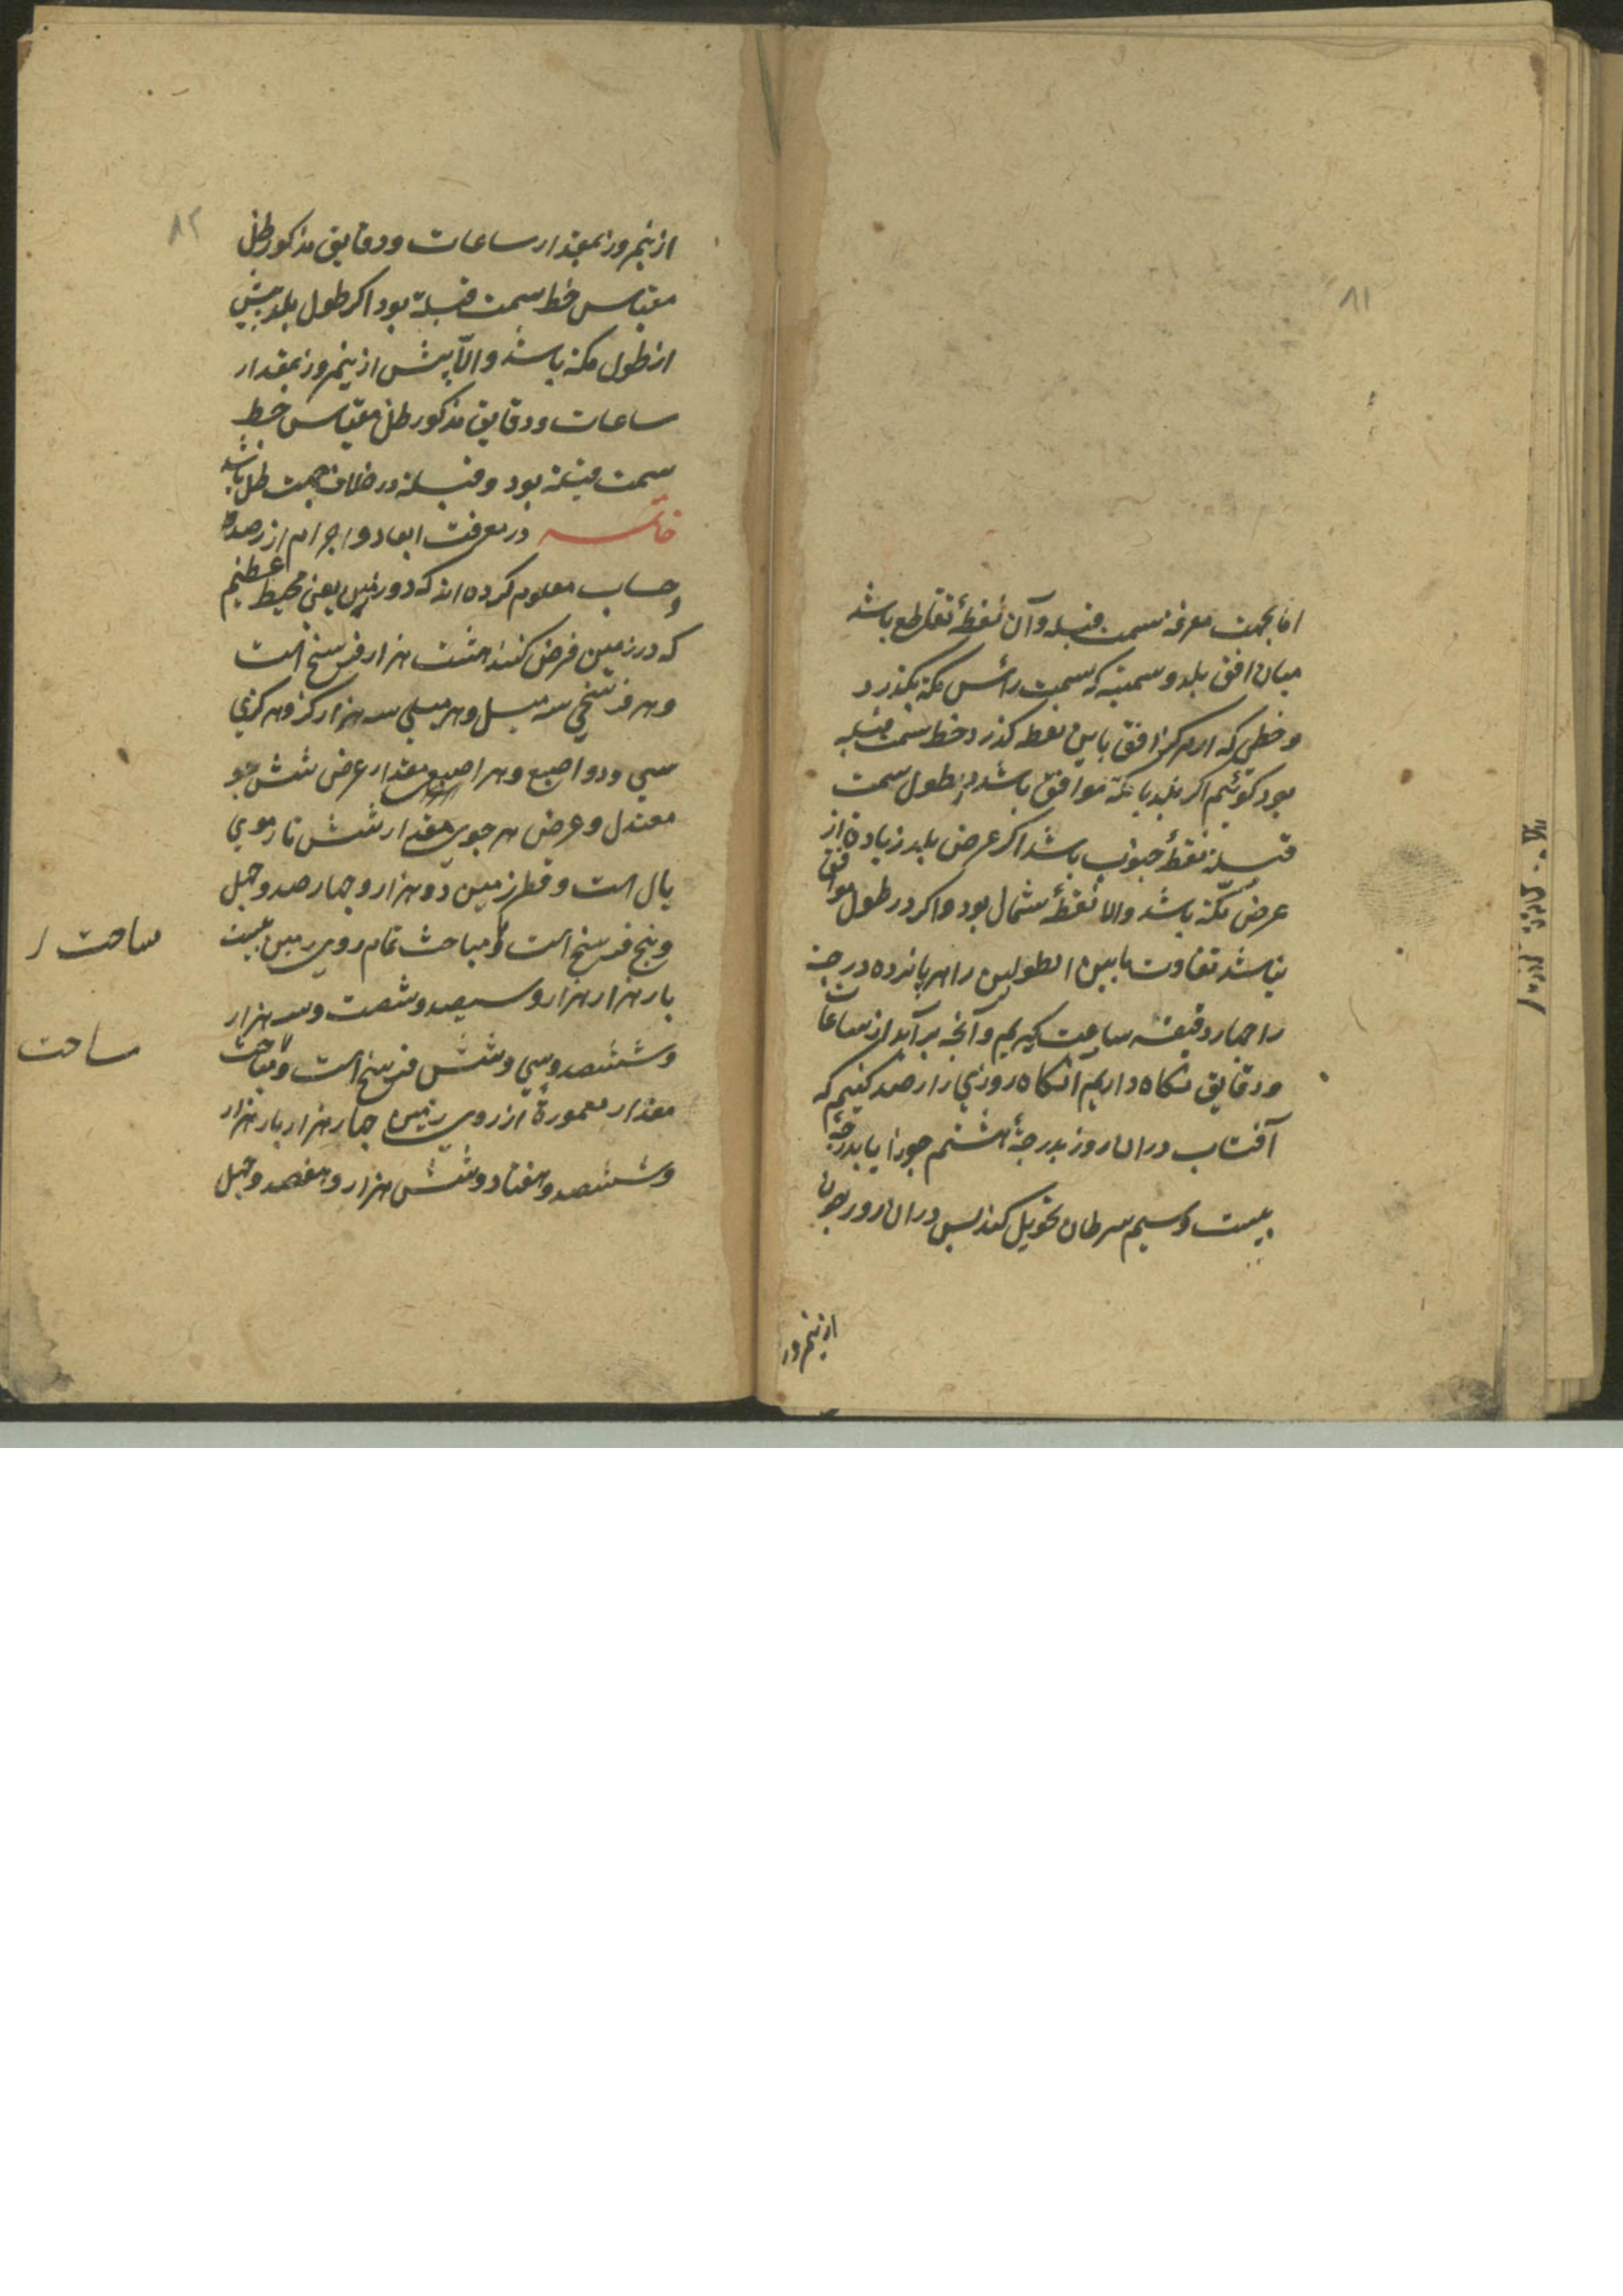 ۸۱
اما بجهت معرفه سمت قبله وآن نقطهٔ تقاطع باشد
میان افق بلد و سمتیه که بسمت رأس مکه بکذرد
و خطی که از مرکز افق باین نقطه کذرد خط سمت قبله
بود کوئیم اکر بلد با مکه موافق باشد در طول سمت
قبله نقطهٔ جنوب باشد اکر عرض بلد زیاده از
عرض مکه باشد والا نقطهٔ شمال بود واکر در طول موافق
نباشد تفاوت مابین الطولین را هر پانزده درجه
را چهار دقیقه ساعت کیریم وآنچه برآید از ساعات
ودقایق نکاه داریم آنکاه روزی را رصد کنیم که
آفتاب دران روز بدرجهٔ هشتم جوزا یا بدرجهٔ
بیست وسیم سرطان تحویل کند پس دران روز چون
از نیم روز
۸۲
از نیم روز بمقدار ساعات ودقایق مذکور ظل
مقیاس خط سمت قبله بود اکر طول بلد بیش
از طول مکه باشد والّا پیش از نیم روز بمقدار
ساعات ودقایق مذکور ظل مقیاس خط
سمت قبله بود وقبله در خلاف جهت ظل باشد
خاتمه در معرفت ابعاد واجرام از رصد
وحساب معلوم کرده اند که دور زمین یعنی محیط عظیم
که در زمین فرض کنند هشت هزار فرسخ است
وهر فرسخی سه میل وهر میلی سه هزار کز وهر کزی
سی ودو اصبع وهر اصبع مقدار عرض شش جو
معتدل وعرض هر جوی مقدار شش تار موی
یال است وقطر زمین دو هزار وچهار صد وچهل
وپنج فرسخ است ومباحث تمام روی زمین بیست
بار هزار هزار وسیصد وشصت وسه هزار
وششصد وسی وشش فرسخ است ومباحت
مقدار معمورهٔ از روی زمین چهار هزار بار هزار
وششصد وهفتاد وشش هزار وهفصد وچهل
ساحت
ساحت